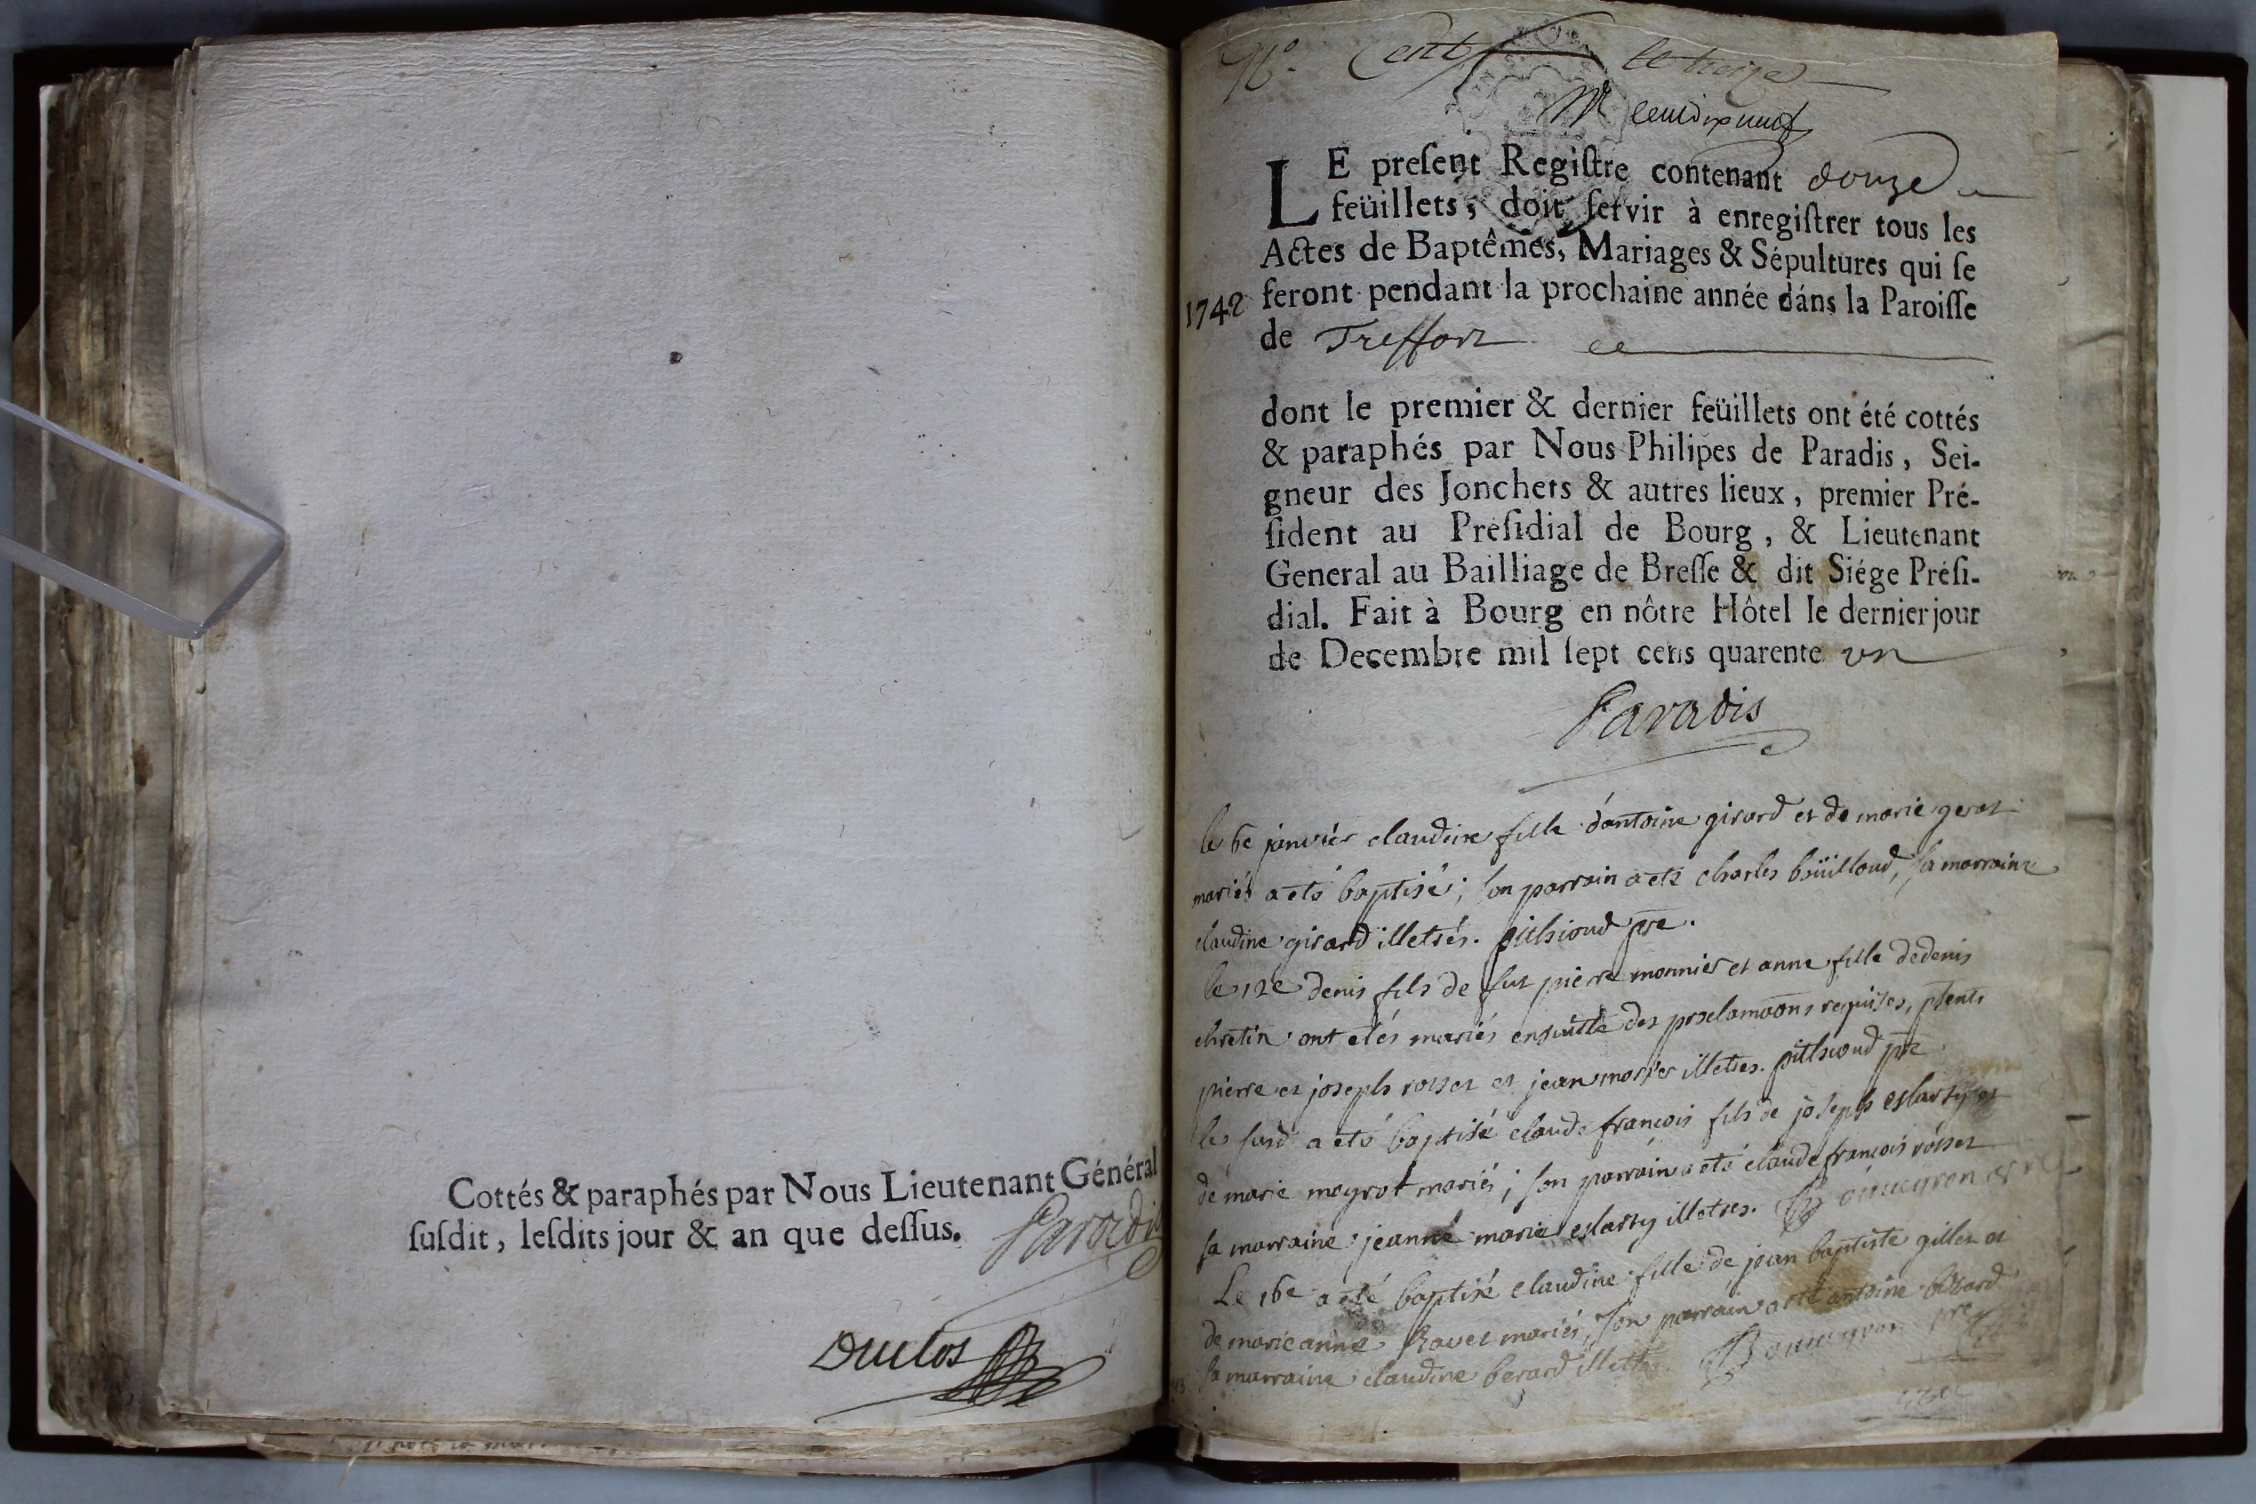 Cottés & paraphés par Nous Lieutenant Général
ſuſdit, leſdits jour & an que deſſus. Paradis
Duclos
N°. Cent
LE preſent Regiſtre contenant douze
feüillets, doit ſervir à enregiſtrer tous les
Actes de Baptêmes, Mariages & Sépultures qui ſe
1742 feront pendant la prochaine année dáns la Paroiſſe
de Treffort
dont le premier & dernier feüillets ont été cottés
& paraphés par Nous Philipes de Paradis, Sei-
gneur des Jonchets & autres lieux, premier Pré-
ſident au Préſidial de Bourg, & Lieutenant
General au Bailliage de Breſſe & dit Siége Préſi-
dial. Fait à Bourg en nôtre Hôtel le dernier jour
de Decembre mil ſept cens quarente un
Paradis
le 6e janvier claudine fille d'antoine girard et de marie
mariés a eté baptisé; son parrain a eté charles boüilloud, sa marraine
claudine girard illetrés. pithioud pre.
le 12e denis fils de fut pierre monnier et anne fille de denis
chretin ont etés mariés ensuitte des proclamaōns requises, pñents
pierre et joseph rosset et jean illetres. pithioud pre
le susd a eté baptisé claude françois fils de joseph et
de marie mariés; son parrain a eté claude françois rosset
sa marraine jeanne marie illetres.
Le 16e a eté baptisé claudine fille de jean baptiste gillet et
de marie anne mariés, son parrain a eté antoine
sa marraine claudine berard illettrés